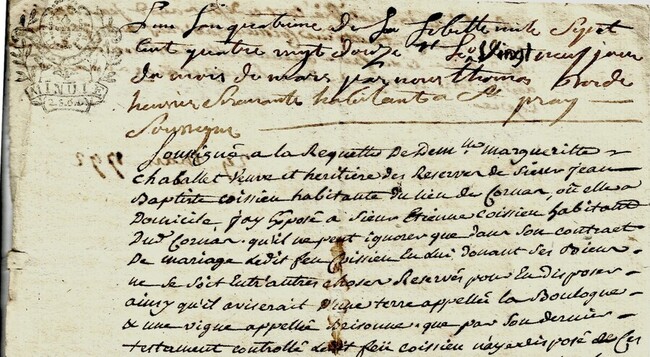 MINUTE
2.S.6.D.
L'an quatrieme de La Liberté mile Sept
Cent quatre vingt douze et Le Vingt neuf jour
du mois de mars par nous Thomas
huissier habitant a St pray
Soussigné
Soussigné a la Requette De Demlle margueritte
chaballet veuve et heritiere des Reserver de Sieur Jean
Baptiste coissieu habitante du lieu de Cornas, où elle a
Domicile jay Exposé a Sieur Etienne coissieu habitant
Dud Cornas qu'il ne peut ignorer que dans son contract
De mariage ledit feu Coissieu En lui donant ses Biens
ne se soit Entrautres choses Reservés pour En disposer
ainsy qu'il aviserait D'une terre appellée la Boulogne
& une vigne appellée que par son dernier
testament controllé ledit feu coissieu n'ayant disposé de Ces
1792